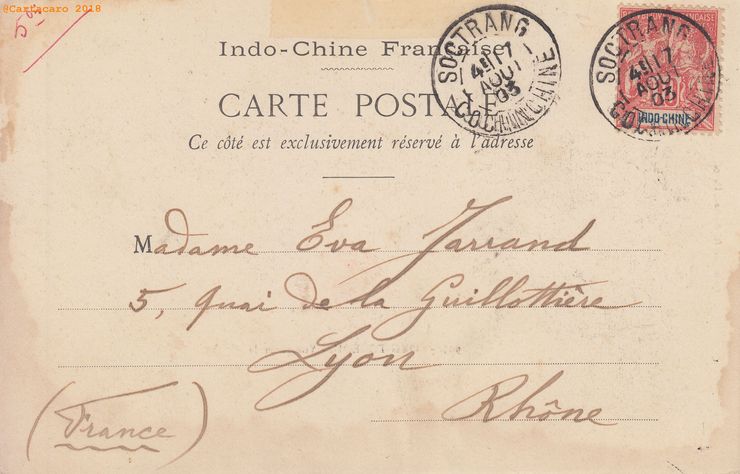 @Cartacaro 2018
Indo-Chine Française
CARTE POSTALE
Ce côté est exclusivement réservé à l'adresse
SOCTRANG
17
AOUT
03
COCHINCHINE
SOCTRANG
17
AOUT
03
COCHINCHINE
INDO-CHINE
Madame Eva Jarrand
5, Quai de la Guillottière
Lyon
Rhône
(France)